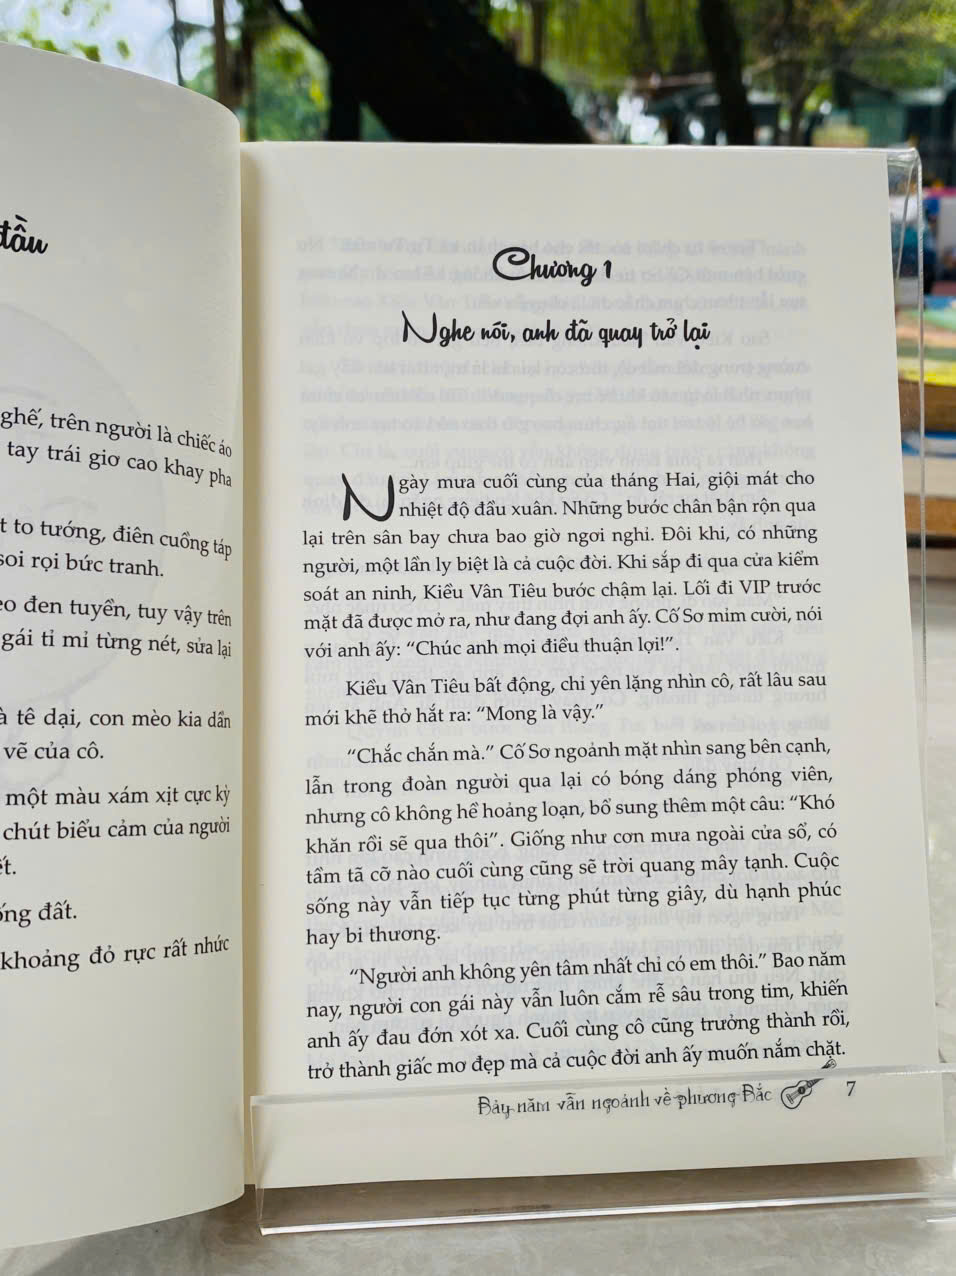 đầu
ghế, trên người là chiếc áo
tay trái giơ cao khay pha
t to tướng, điên cuồng táp
soi rọi bức tranh.
eo đen tuyền, tuy vậy trên
gái tỉ mỉ từng nét, sửa lại
à tê dại, con mèo kia dần
vẽ của cô.
một màu xám xịt cực kỳ
chút biểu cảm của người
ết.
ống đất.
khoảng đỏ rực rất nhức
Chương 1
Nghe nói, anh đã quay trở lại
Ngày mưa cuối cùng của tháng Hai, giội mát cho
nhiệt độ đầu xuân. Những bước chân bận rộn qua
lại trên sân bay chưa bao giờ ngơi nghỉ. Đôi khi, có những
người, một lần ly biệt là cả cuộc đời. Khi sắp đi qua cửa kiểm
soát an ninh, Kiều Vân Tiêu bước chậm lại. Lối đi VIP trước
mặt đã được mở ra, như đang đợi anh ấy. Cố Sơ mỉm cười, nói
với anh ấy: “Chúc anh mọi điều thuận lợi!”.
Kiều Vân Tiêu bất động, chỉ yên lặng nhìn cô, rất lâu sau
mới khẽ thở hắt ra: “Mong là vậy.”
“Chắc chắn mà.” Cố Sơ ngoảnh mặt nhìn sang bên cạnh,
lẫn trong đoàn người qua lại có bóng dáng phóng viên,
nhưng cô không hề hoảng loạn, bổ sung thêm một câu: “Khó
khăn rồi sẽ qua thôi”. Giống như cơn mưa ngoài cửa sổ, có
tầm tã cỡ nào cuối cùng cũng sẽ trời quang mây tạnh. Cuộc
sống này vẫn tiếp tục từng phút từng giây, dù hạnh phúc
hay bi thương.
“Người anh không yên tâm nhất chỉ có em thôi.” Bao năm
nay, người con gái này vẫn luôn cắm rễ sâu trong tim, khiến
anh ấy đau đớn xót xa. Cuối cùng cô cũng trưởng thành rồi,
trở thành giấc mơ đẹp mà cả cuộc đời anh ấy muốn nắm chặt.
Bảy năm vẫn ngoảnh về phương Bắc 7